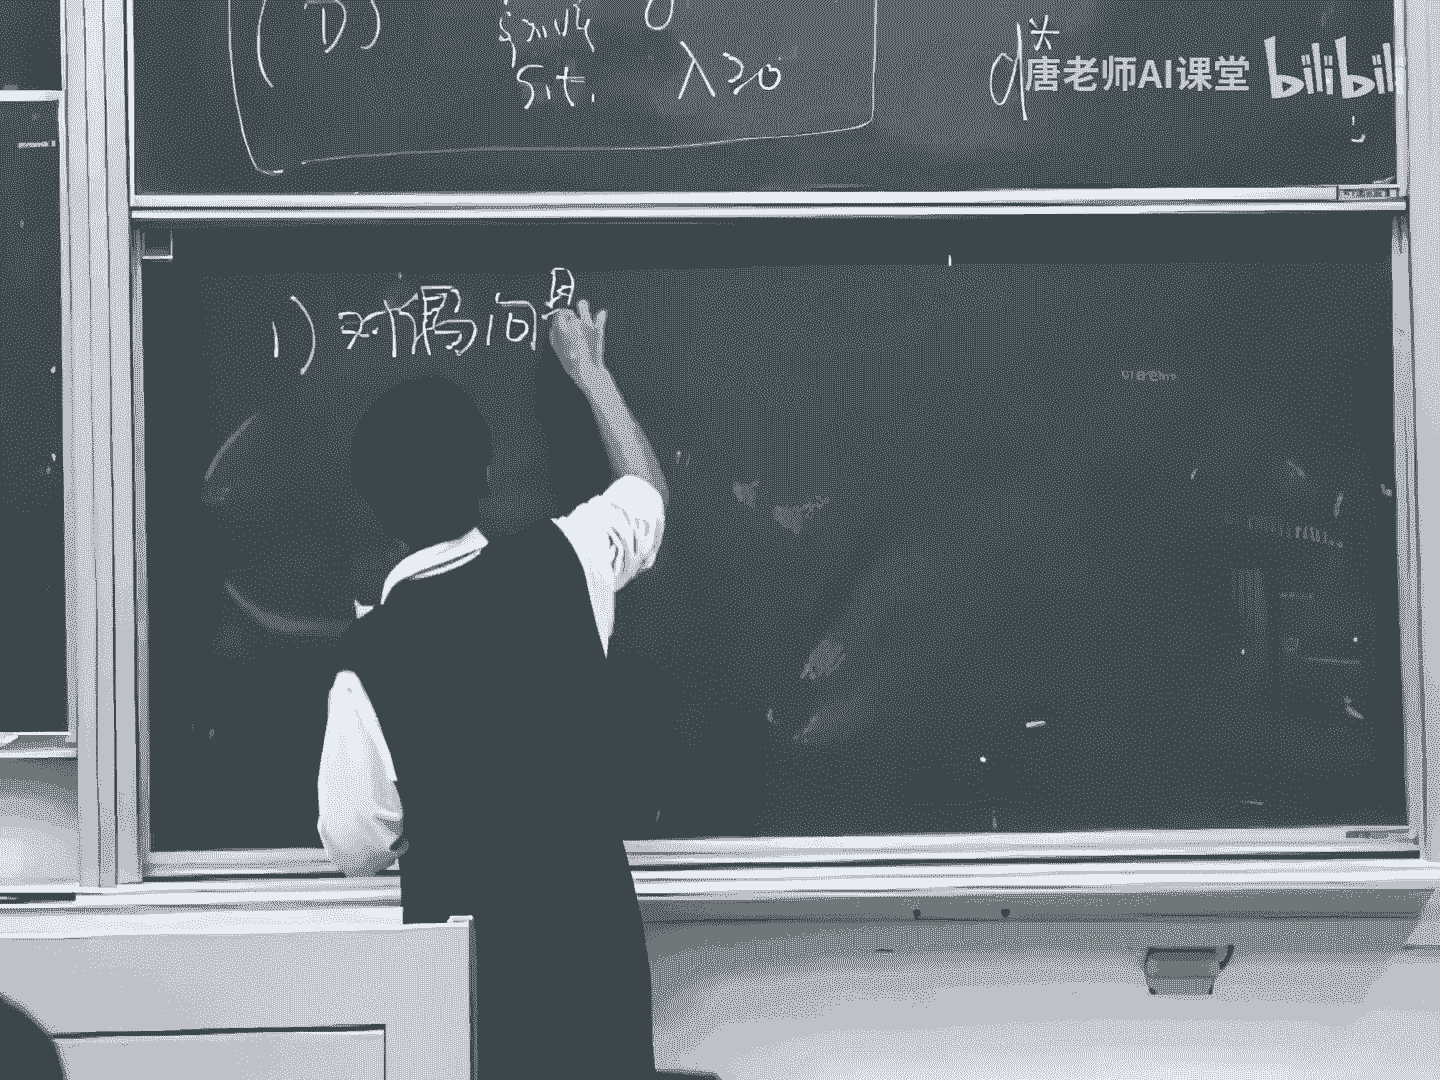 (D)
s.t. λ≥0
d*
唐老师AI课堂 bilibili
1) 对偶问